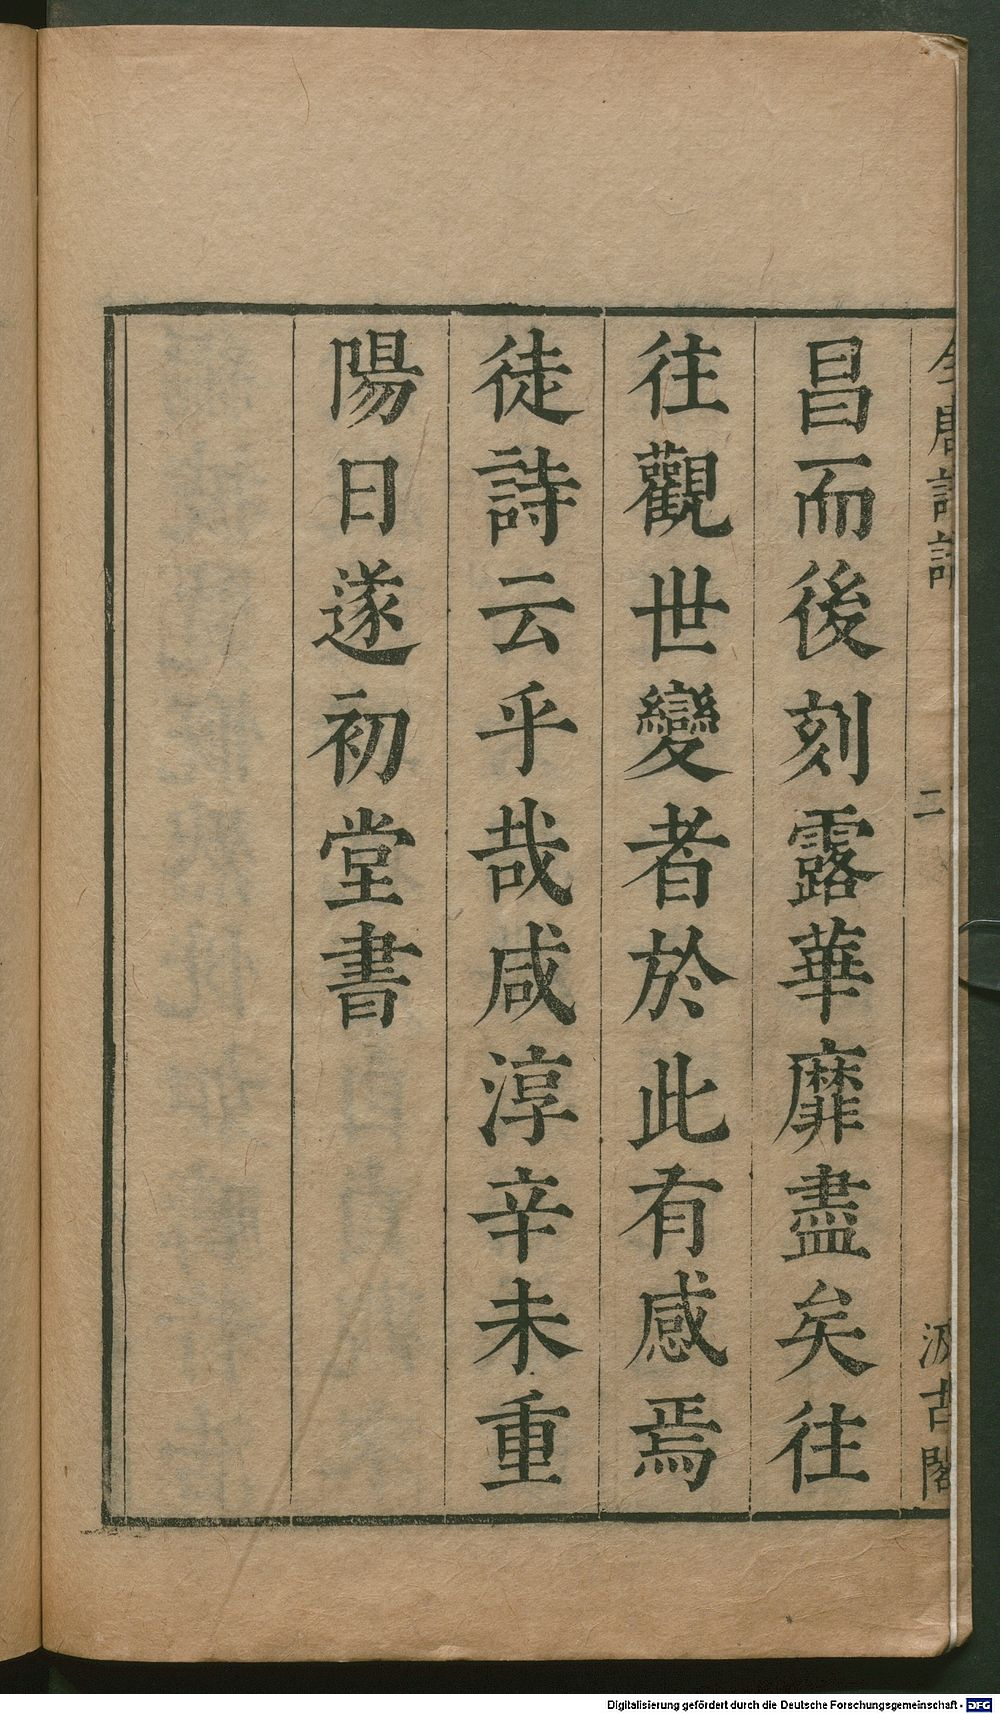 全唐詩話
二
汲古閣
昌而後刻露華靡盡矣往
往觀世變者於此有感焉
徒詩云乎哉咸淳辛未重
陽日遂初堂書
Digitalisierung gefördert durch die Deutsche Forschungsgemeinschaft - DFG